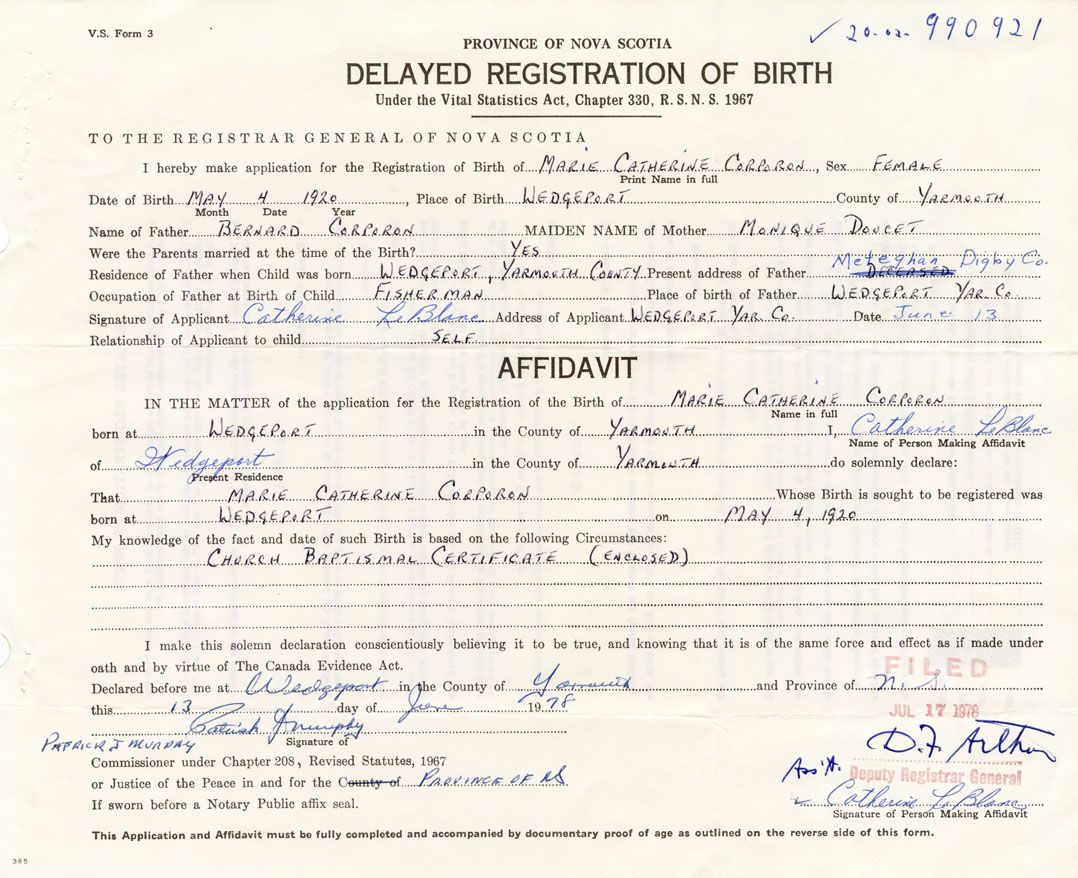 V.S. Form 3
✓ 20-02- 990921
PROVINCE OF NOVA SCOTIA
DELAYED REGISTRATION OF BIRTH
Under the Vital Statistics Act, Chapter 330, R.S.N.S. 1967
TO THE REGISTRAR GENERAL OF NOVA SCOTIA
I hereby make application for the Registration of Birth of MARIE CATHERINE CORPORON, Sex FEMALE
Print Name in full
Date of Birth MAY 4 1920, Place of Birth WEDGEPORT County of YARMOUTH
Month Date Year
Name of Father BERNARD CORPORON MAIDEN NAME of Mother MONIQUE DOUCET
Were the Parents married at the time of the Birth? YES
Residence of Father when Child was born WEDGEPORT, YARMOUTH COUNTY Present address of Father DECEASED Meteghan Digby Co.
Occupation of Father at Birth of Child FISHERMAN Place of birth of Father WEDGEPORT YAR. CO.
Signature of Applicant Catherine LeBlanc Address of Applicant WEDGEPORT YAR. CO. Date June 13
Relationship of Applicant to child SELF
AFFIDAVIT
IN THE MATTER of the application for the Registration of the Birth of MARIE CATHERINE CORPORON
Name in full
born at WEDGEPORT in the County of YARMOUTH I, Catherine LeBlanc
Name of Person Making Affidavit
of Wedgeport in the County of YARMOUTH do solemnly declare:
Present Residence
That MARIE CATHERINE CORPORON Whose Birth is sought to be registered was
born at WEDGEPORT on MAY 4, 1920
My knowledge of the fact and date of such Birth is based on the following Circumstances:
CHURCH BAPTISMAL CERTIFICATE (ENCLOSED)
I make this solemn declaration conscientiously believing it to be true, and knowing that it is of the same force and effect as if made under
oath and by virtue of The Canada Evidence Act.
FILED
Declared before me at Wedgeport in the County of Yarmouth and Province of N.S.
this 13 day of June 1978
JUL 17 1978
PATRICK J MURPHY
Signature of
D.F. Arthur
Commissioner under Chapter 208, Revised Statutes, 1967
Ass't. Deputy Registrar General
or Justice of the Peace in and for the County of PROVINCE OF NS
Catherine LeBlanc
If sworn before a Notary Public affix seal.
Signature of Person Making Affidavit
This Application and Affidavit must be fully completed and accompanied by documentary proof of age as outlined on the reverse side of this form.
385